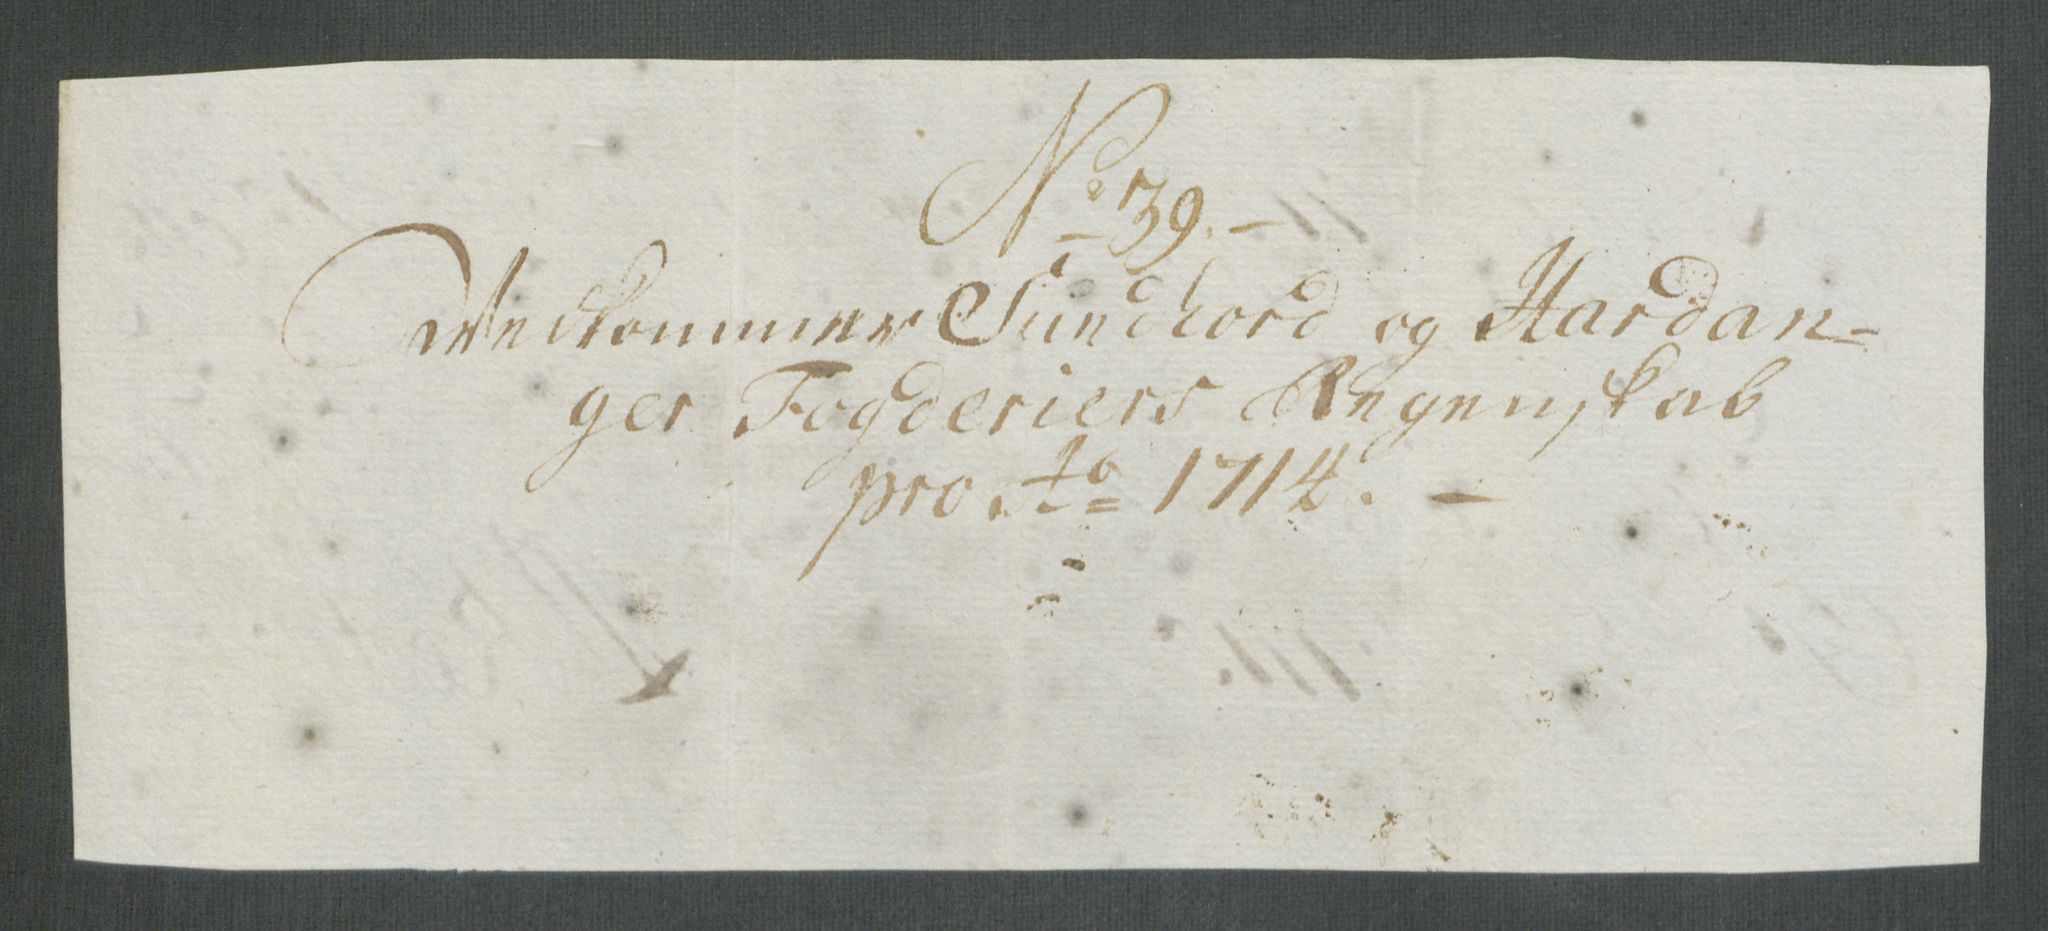 No 39. —
Vedkommer Sundhord og Hardan=
ger Fogderiers Regenskab
pro Ao 1714. —